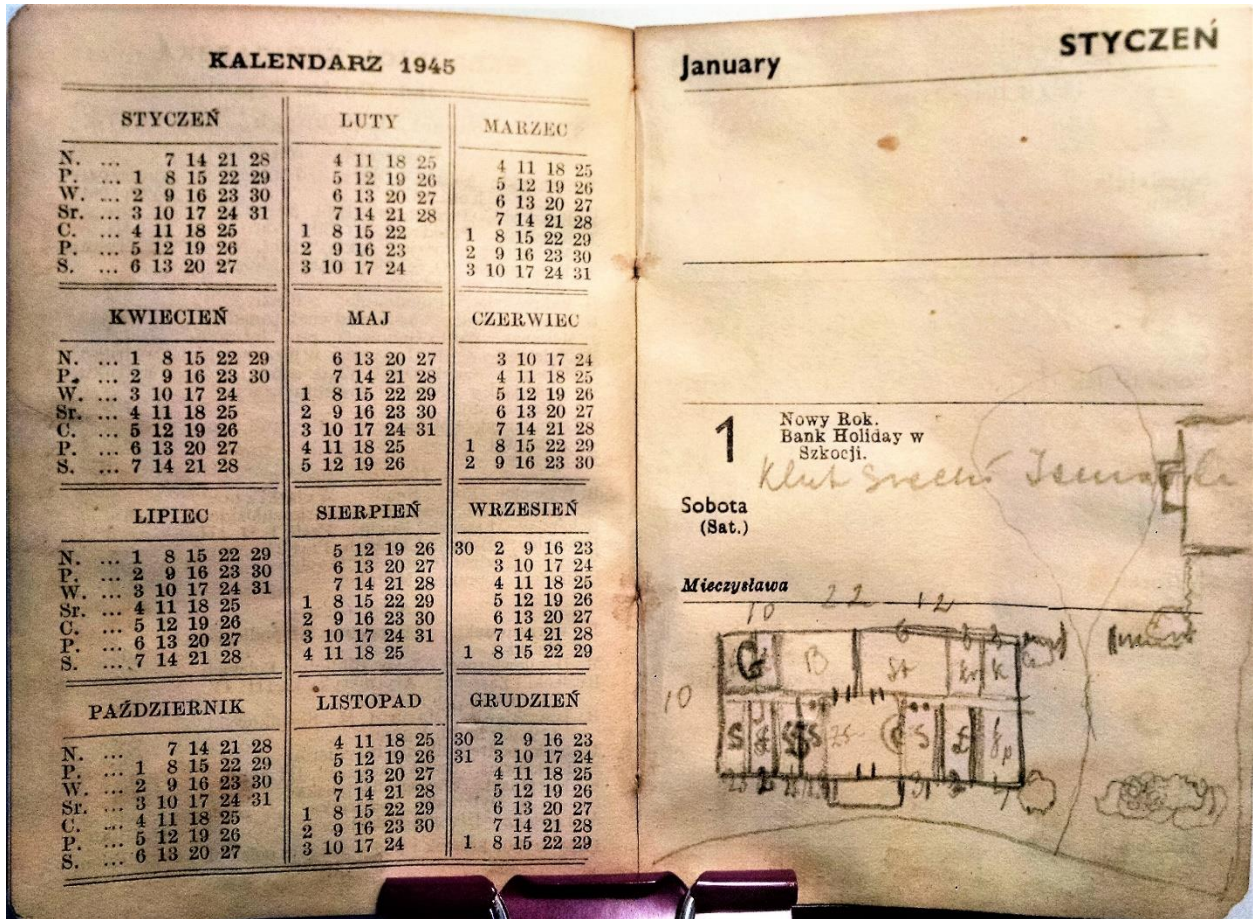 KALENDARZ 1945
STYCZEŃ
N. ... 7 14 21 28
P. ... 1 8 15 22 29
W. ... 2 9 16 23 30
Sr. ... 3 10 17 24 31
C. ... 4 11 18 25
P. ... 5 12 19 26
S. ... 6 13 20 27
LUTY
4 11 18 25
5 12 19 26
6 13 20 27
7 14 21 28
1 8 15 22
2 9 16 23
3 10 17 24
MARZEC
4 11 18 25
5 12 19 26
6 13 20 27
7 14 21 28
1 8 15 22 29
2 9 16 23 30
3 10 17 24 31
KWIECIEŃ
N. ... 1 8 15 22 29
P. ... 2 9 16 23 30
W. ... 3 10 17 24
Sr. ... 4 11 18 25
C. ... 5 12 19 26
P. ... 6 13 20 27
S. ... 7 14 21 28
MAJ
6 13 20 27
7 14 21 28
1 8 15 22 29
2 9 16 23 30
3 10 17 24 31
4 11 18 25
5 12 19 26
CZERWIEC
3 10 17 24
4 11 18 25
5 12 19 26
6 13 20 27
7 14 21 28
1 8 15 22 29
2 9 16 23 30
LIPIEC
N. ... 1 8 15 22 29
P. ... 2 9 16 23 30
W. ... 3 10 17 24 31
Sr. ... 4 11 18 25
C. ... 5 12 19 26
P. ... 6 13 20 27
S. ... 7 14 21 28
SIERPIEŃ
5 12 19 26
6 13 20 27
7 14 21 28
1 8 15 22 29
2 9 16 23 30
3 10 17 24 31
4 11 18 25
WRZESIEŃ
30 2 9 16 23
3 10 17 24
4 11 18 25
5 12 19 26
6 13 20 27
7 14 21 28
1 8 15 22 29
PAŹDZIERNIK
N. ... 7 14 21 28
P. ... 1 8 15 22 29
W. ... 2 9 16 23 30
Sr. ... 3 10 17 24 31
C. ... 4 11 18 25
P. ... 5 12 19 26
S. ... 6 13 20 27
LISTOPAD
4 11 18 25
5 12 19 26
6 13 20 27
7 14 21 28
1 8 15 22 29
2 9 16 23 30
3 10 17 24
GRUDZIEŃ
30 2 9 16 23
31 3 10 17 24
4 11 18 25
5 12 19 26
6 13 20 27
7 14 21 28
1 8 15 22 29
January STYCZEŃ
1
Nowy Rok.
Bank Holiday w
Szkocji.
Sobota
(Sat.)
Mieczysława
10 22 12
G B St K
10